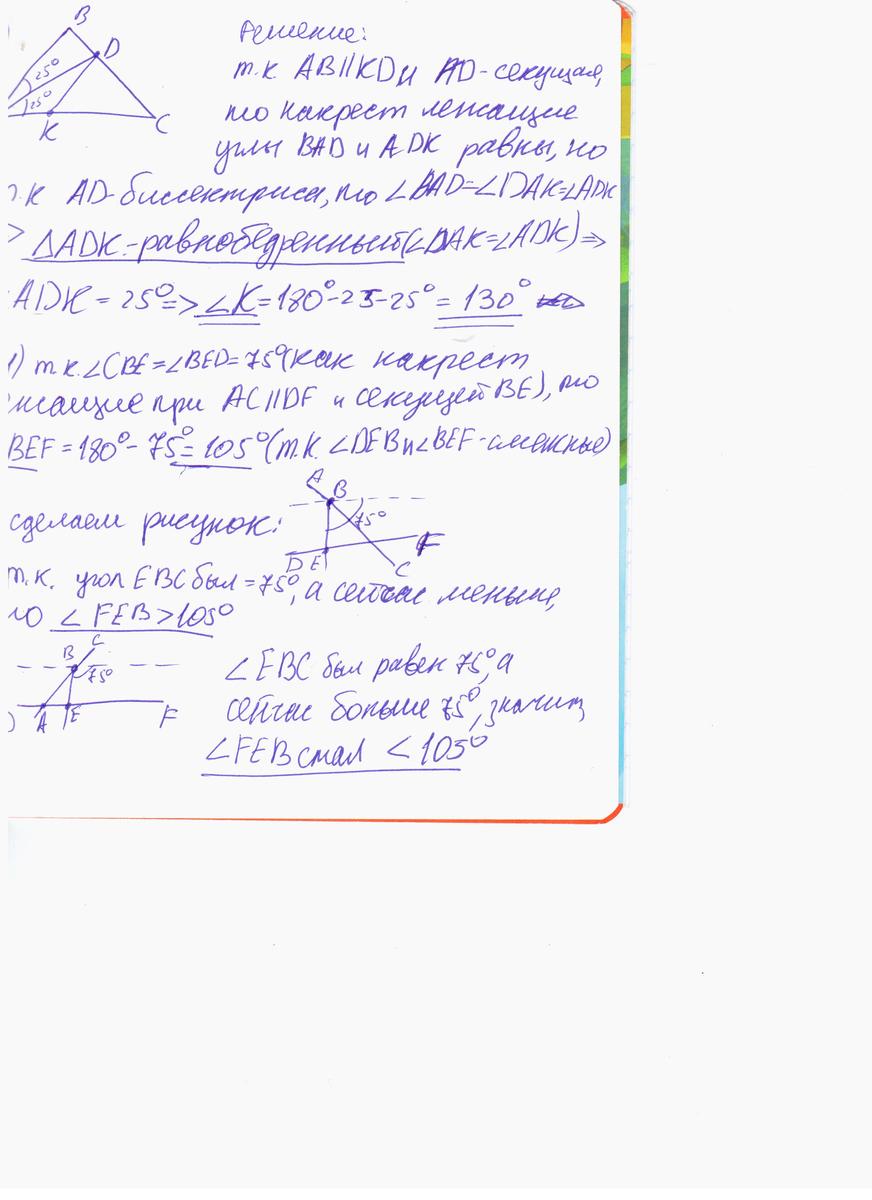 B
D
25°
25°
K
C
Решение:
т.к AB||KD и AD-секущая,
то накрест лежащие
углы BAD и ADK равны, но
т.к AD-биссектриса, то ∠BAD=∠DAK=∠ADK
> ΔADK-равнобедренный(∠DAK=∠ADK)⇒
ADK = 25°=> ∠K=180°-25-25°=130°
1) т.к.∠CBE=∠BED=75°(как накрест
жащие при AC||DF и секущей BE), то
BEF=180°-75°=105°(т.к. ∠DEB и ∠BEF-смежные)
сделаем рисунок:
A
B
75°
D E
F
C
т.к. угол EBC был=75°, а сейчас меньше,
то ∠FEB>105°
B
C
75°
A
E
F
)
∠EBC был равен 75°, а
сейчас больше 75°, значит,
∠FEB стал < 105°